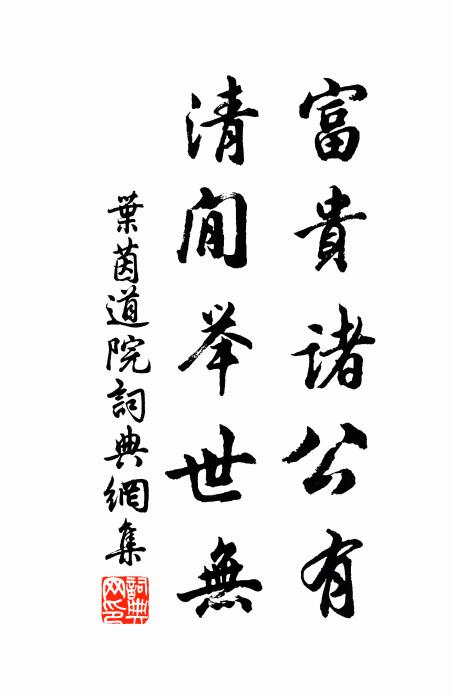 富貴諸公有
清閒举世無
葉茵道院詞典網集
詞典网印